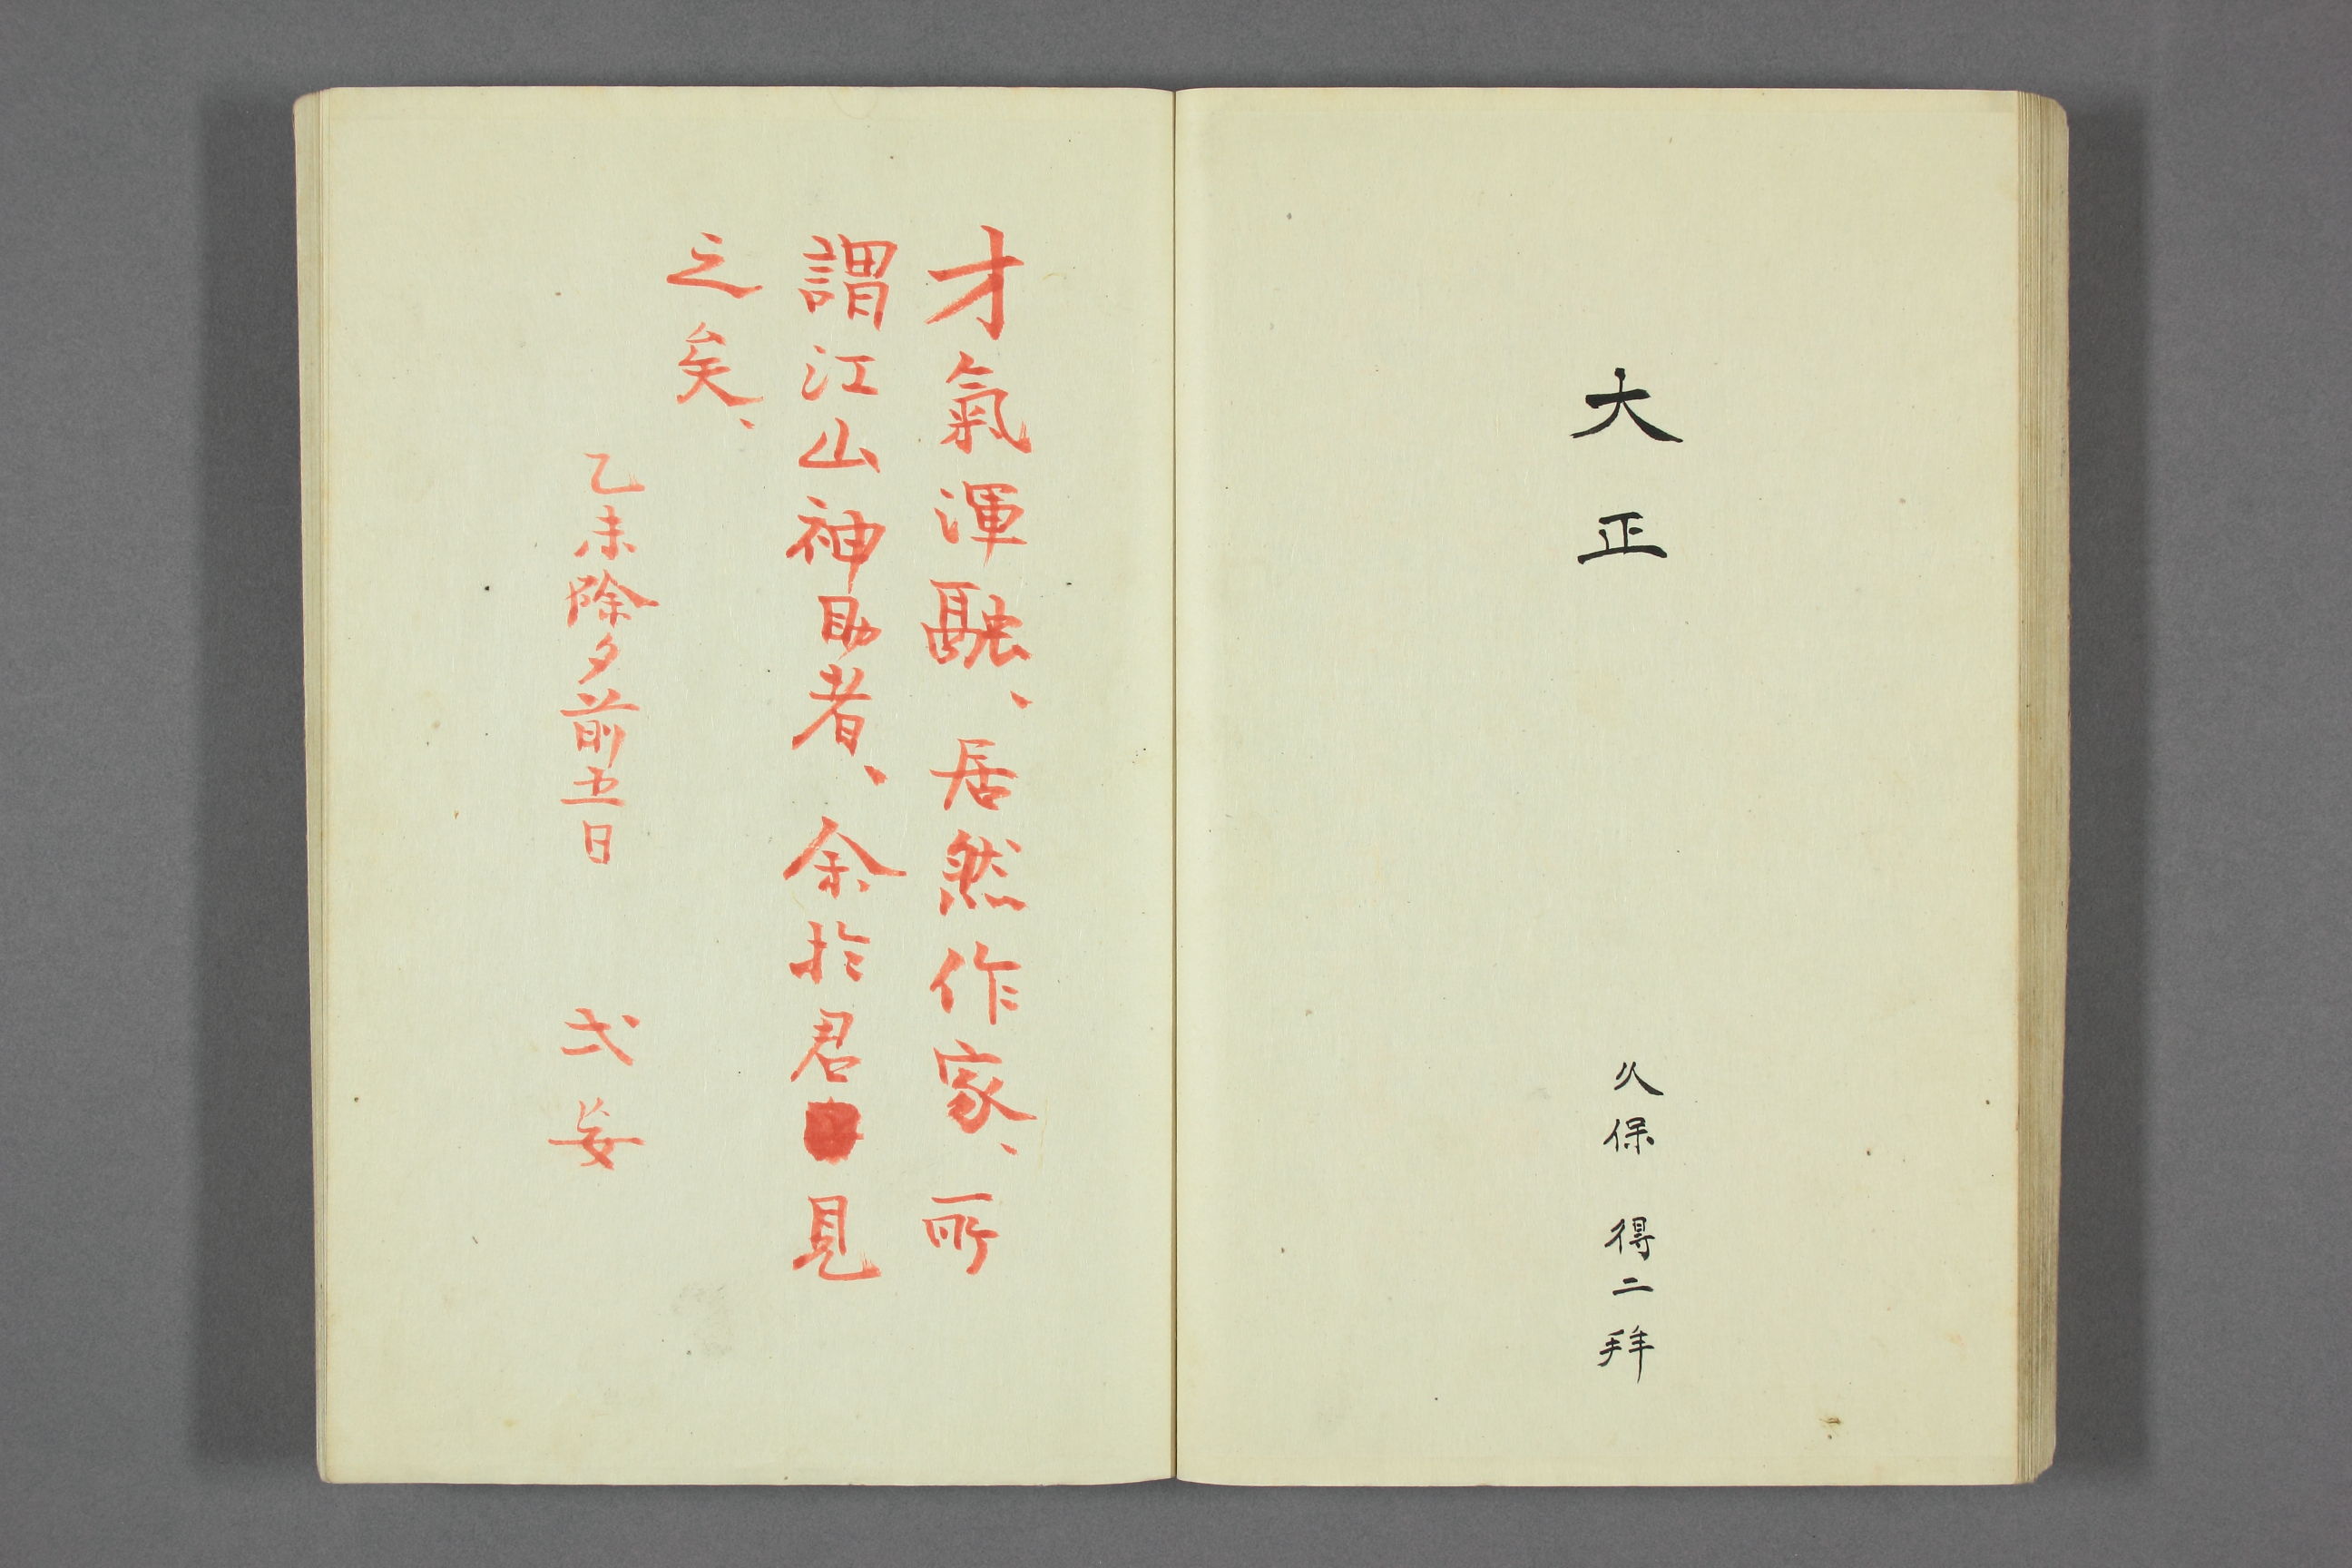 大正
久保 得二拜
才氣渾融、居然作家、所
謂江山神助者、余於君見
之矣、
乙未除夕前五日